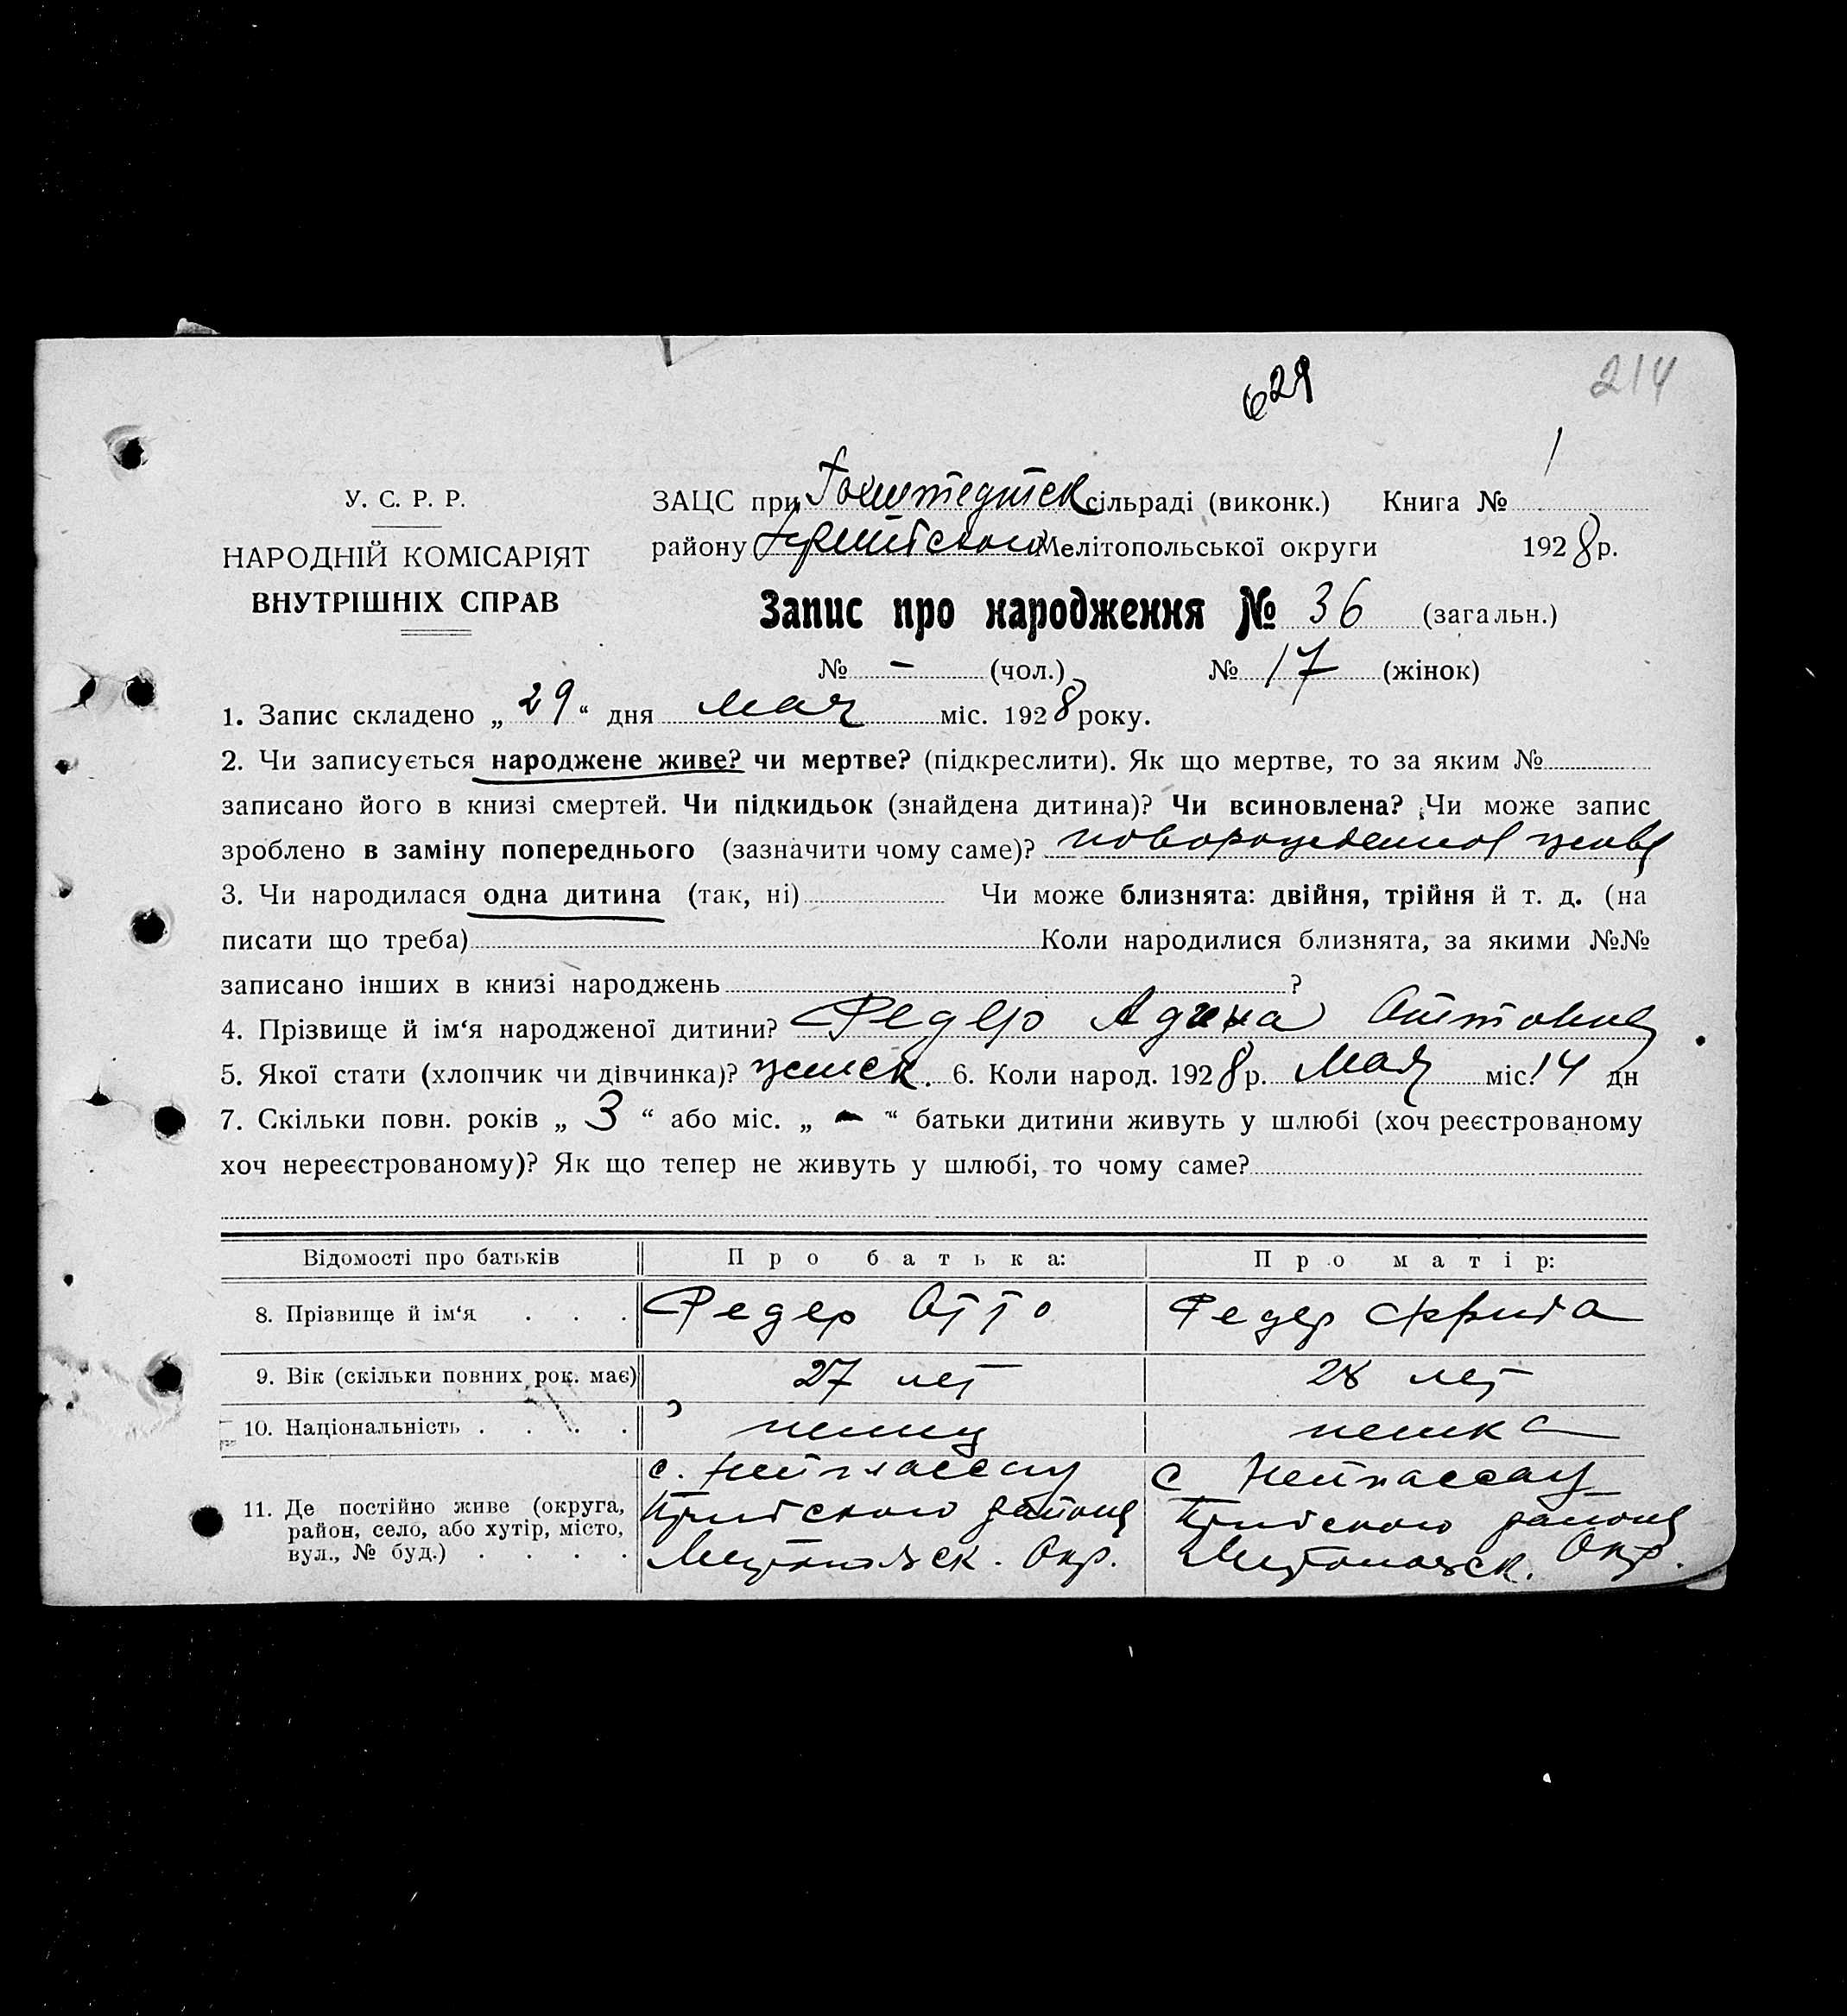 629
214
У. С. Р. Р.
НАРОДНІЙ КОМІСАРІЯТ
ВНУТРІШНІХ СПРАВ
ЗАЦС при Гохштедтск сільраді (виконк.) Книга № 1
району Мелітопольської округи 1928 р.
Запис про народження № 36 (загальн.)
№ – (чол.) № 17 (жінок)
1. Запис складено „ 29 “ дня мая міс. 1928 року.
2. Чи записується народжене живе? чи мертве? (підкреслити). Як що мертве, то за яким №
записано його в книзі смертей. Чи підкидьок (знайдена дитина)? Чи всиновлена? Чи може запис
зроблено в заміну попереднього (зазначити чому саме)?
3. Чи народилася одна дитина (так, ні) Чи може близнята: двійня, трійня й т. д. (на
писати що треба) Коли народилися близнята, за якими №№
записано інших в книзі народжень ?
4. Прізвище й ім‘я народженої дитини? Федер Адина Оттовна
5. Якої стати (хлопчик чи дівчинка)? женск. 6. Коли народ. 1928 р. Мая міс. 14 дн
7. Скільки повн. років „ 3 “ або міс. „ – “ батьки дитини живуть у шлюбі (хоч реєстрованому
хоч нереєстрованому)? Як що тепер не живуть у шлюбі, то чому саме?
Відомості про батьків Про батька: Про матір:
8. Прізвище й ім‘я . . . Федер Отто Федер Фрида
9. Вік (скільки повних рок. має) 27 лет 28 лет
10. Національність . . . . немец немка
11. Де постійно живе (округа,
район, село, або хутір, місто,
вул., № буд.) . . . .
с. Нейнассау
района
Мелитопольск. Окр.
с Нейнассау
района
Мелитопольск. Окр.